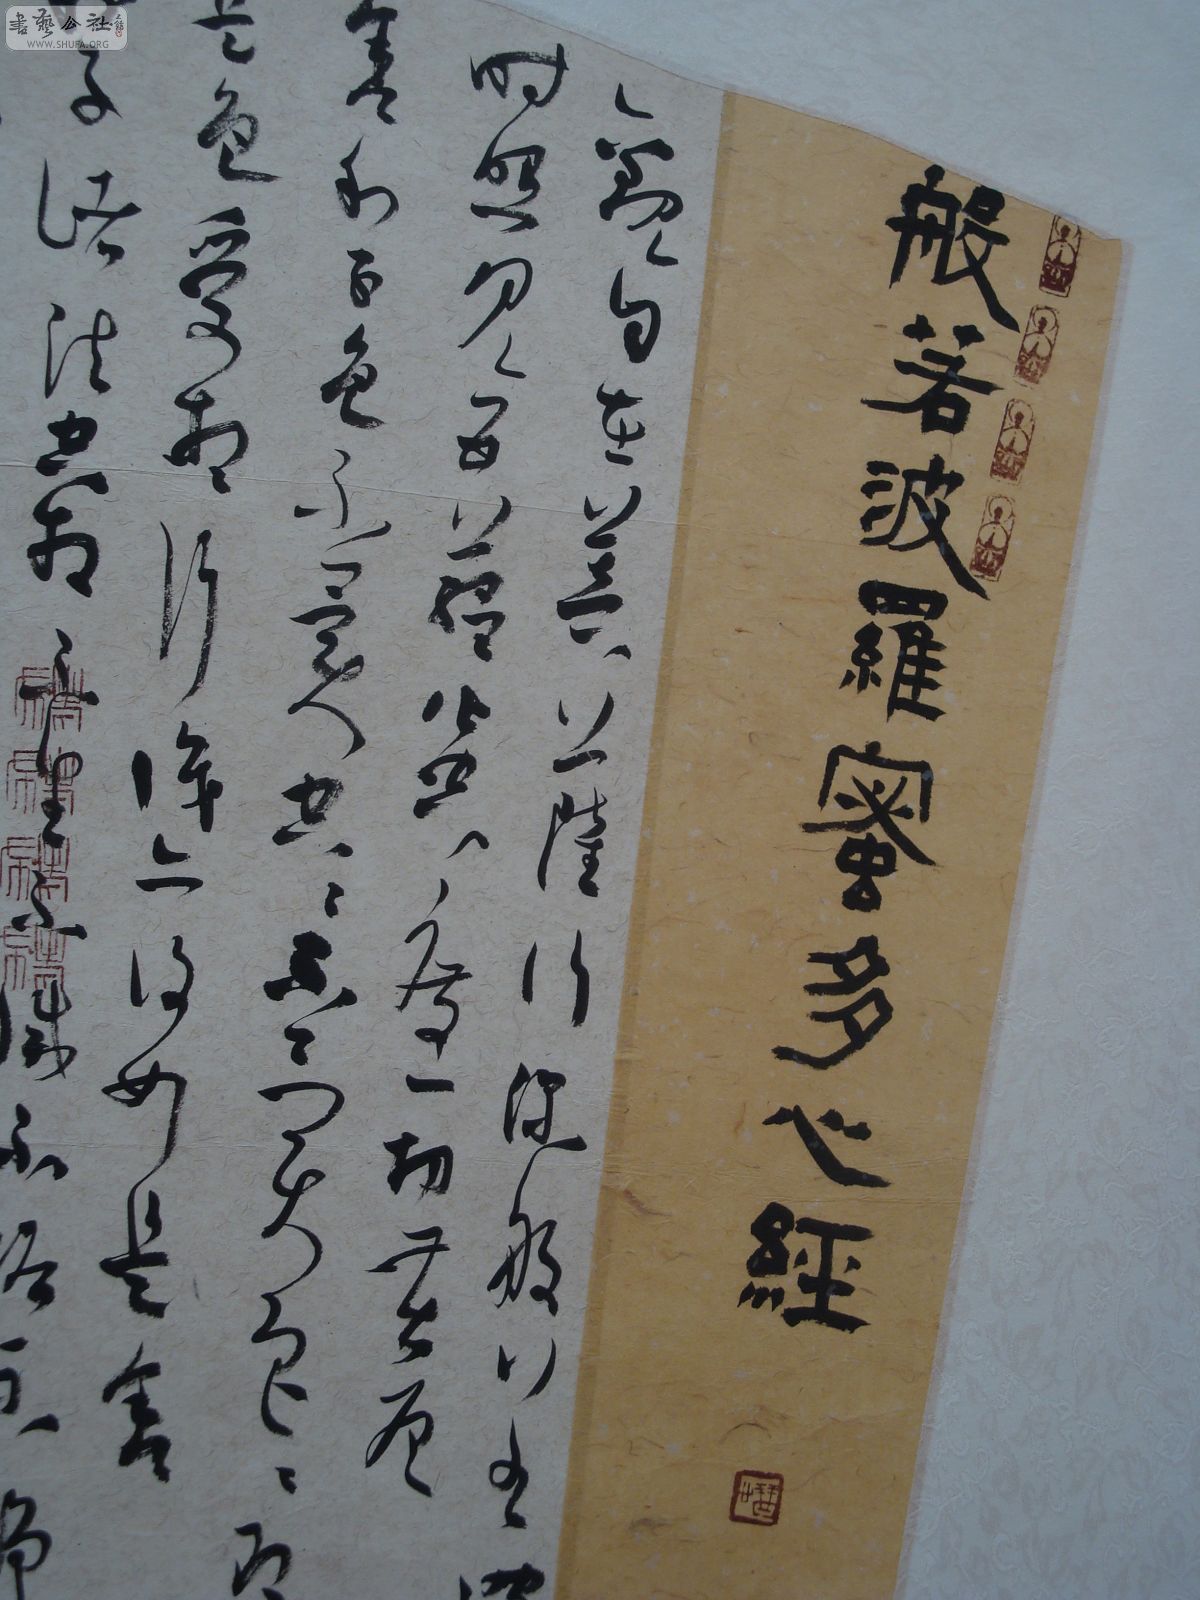 書藝公社
WWW.SHUFA.ORG
般若波羅蜜多心經
觀自在菩薩行深般若
時照見五蘊皆空度一切苦厄
舍利子色不異空々不異色々即
是色受想行識亦復如是舍
子諸法空相不生不滅不垢不淨